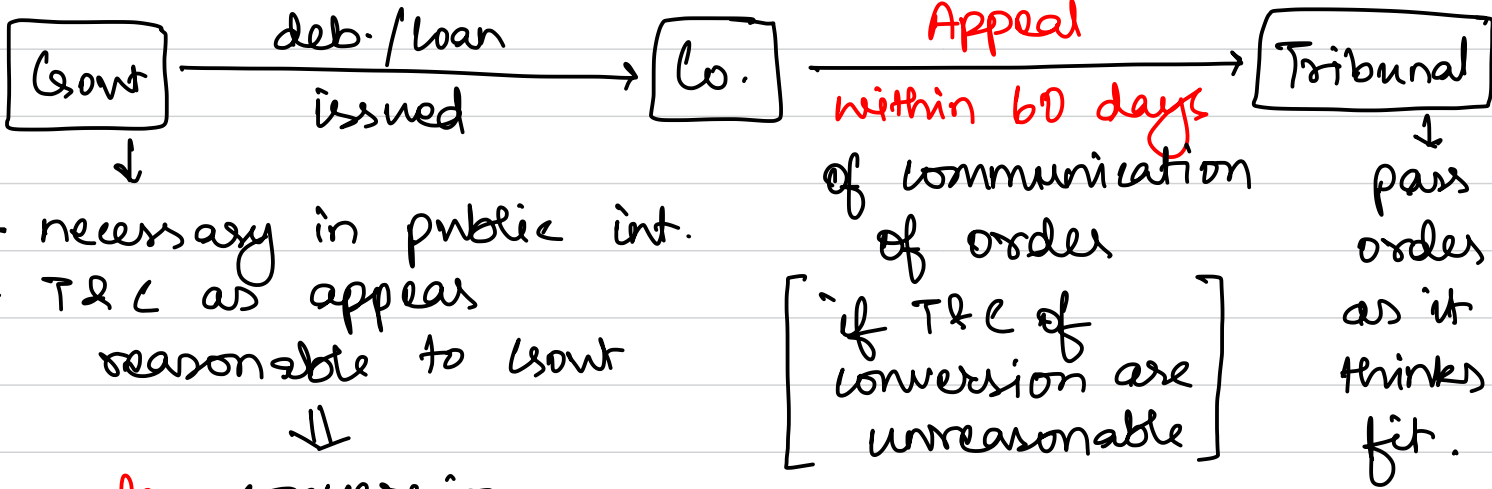 Govt
deb./loan
issued
Co.
Appeal
within 60 days
of communication
of order
[if T&C of
conversion are
unreasonable]
Tribunal
pass
order
as it
thinks
fit.
· necessary in public int.
· T&C as appears
reasonable to Govt
conversion